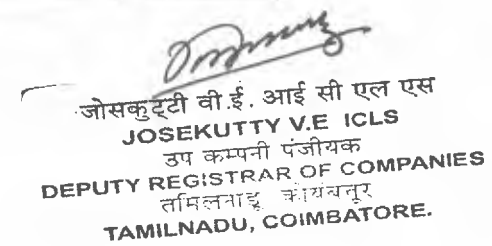 जोसकुट्टी वी.ई. आई सी एल एस
JOSEKUTTY V.E ICLS
उप कम्पनी पंजीयक
DEPUTY REGISTRAR OF COMPANIES
तमिलनाडू कोयंबत्तूर
TAMILNADU, COIMBATORE.